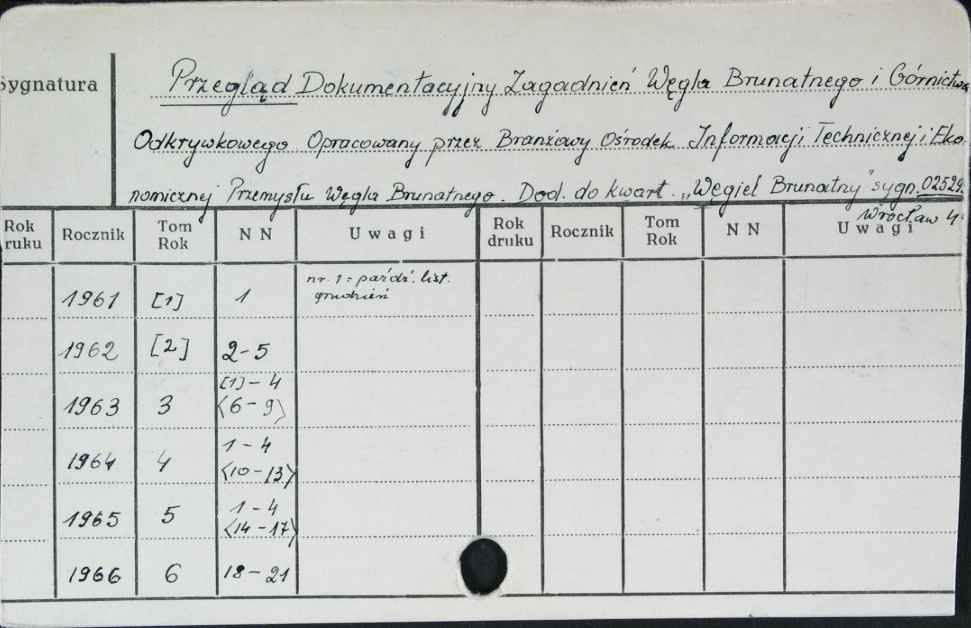 Sygnatura
Przegląd Dokumentacyjny Zagadnień Węgla Brunatnego i Górnictwa
Odkrywkowego Opracowany przez Branżowy Ośrodek Informacji Technicznej i Eko
nomicznej Przemysłu Węgla Brunatnego. Dod. do kwart. „Węgiel Brunatny" sygn. 02529.
Wrocław 4
Rok ruku Rocznik Tom Rok N N Uwagi Rok druku Rocznik Tom Rok N N Uwagi
1961 [1] 1 nr. 1 = paźdź. list. grudzień
1962 [2] 2-5
1963 3 [1]-4 <6-9>
1964 4 1-4 <10-13>
1965 5 1-4 <14-17>
1966 6 18-21